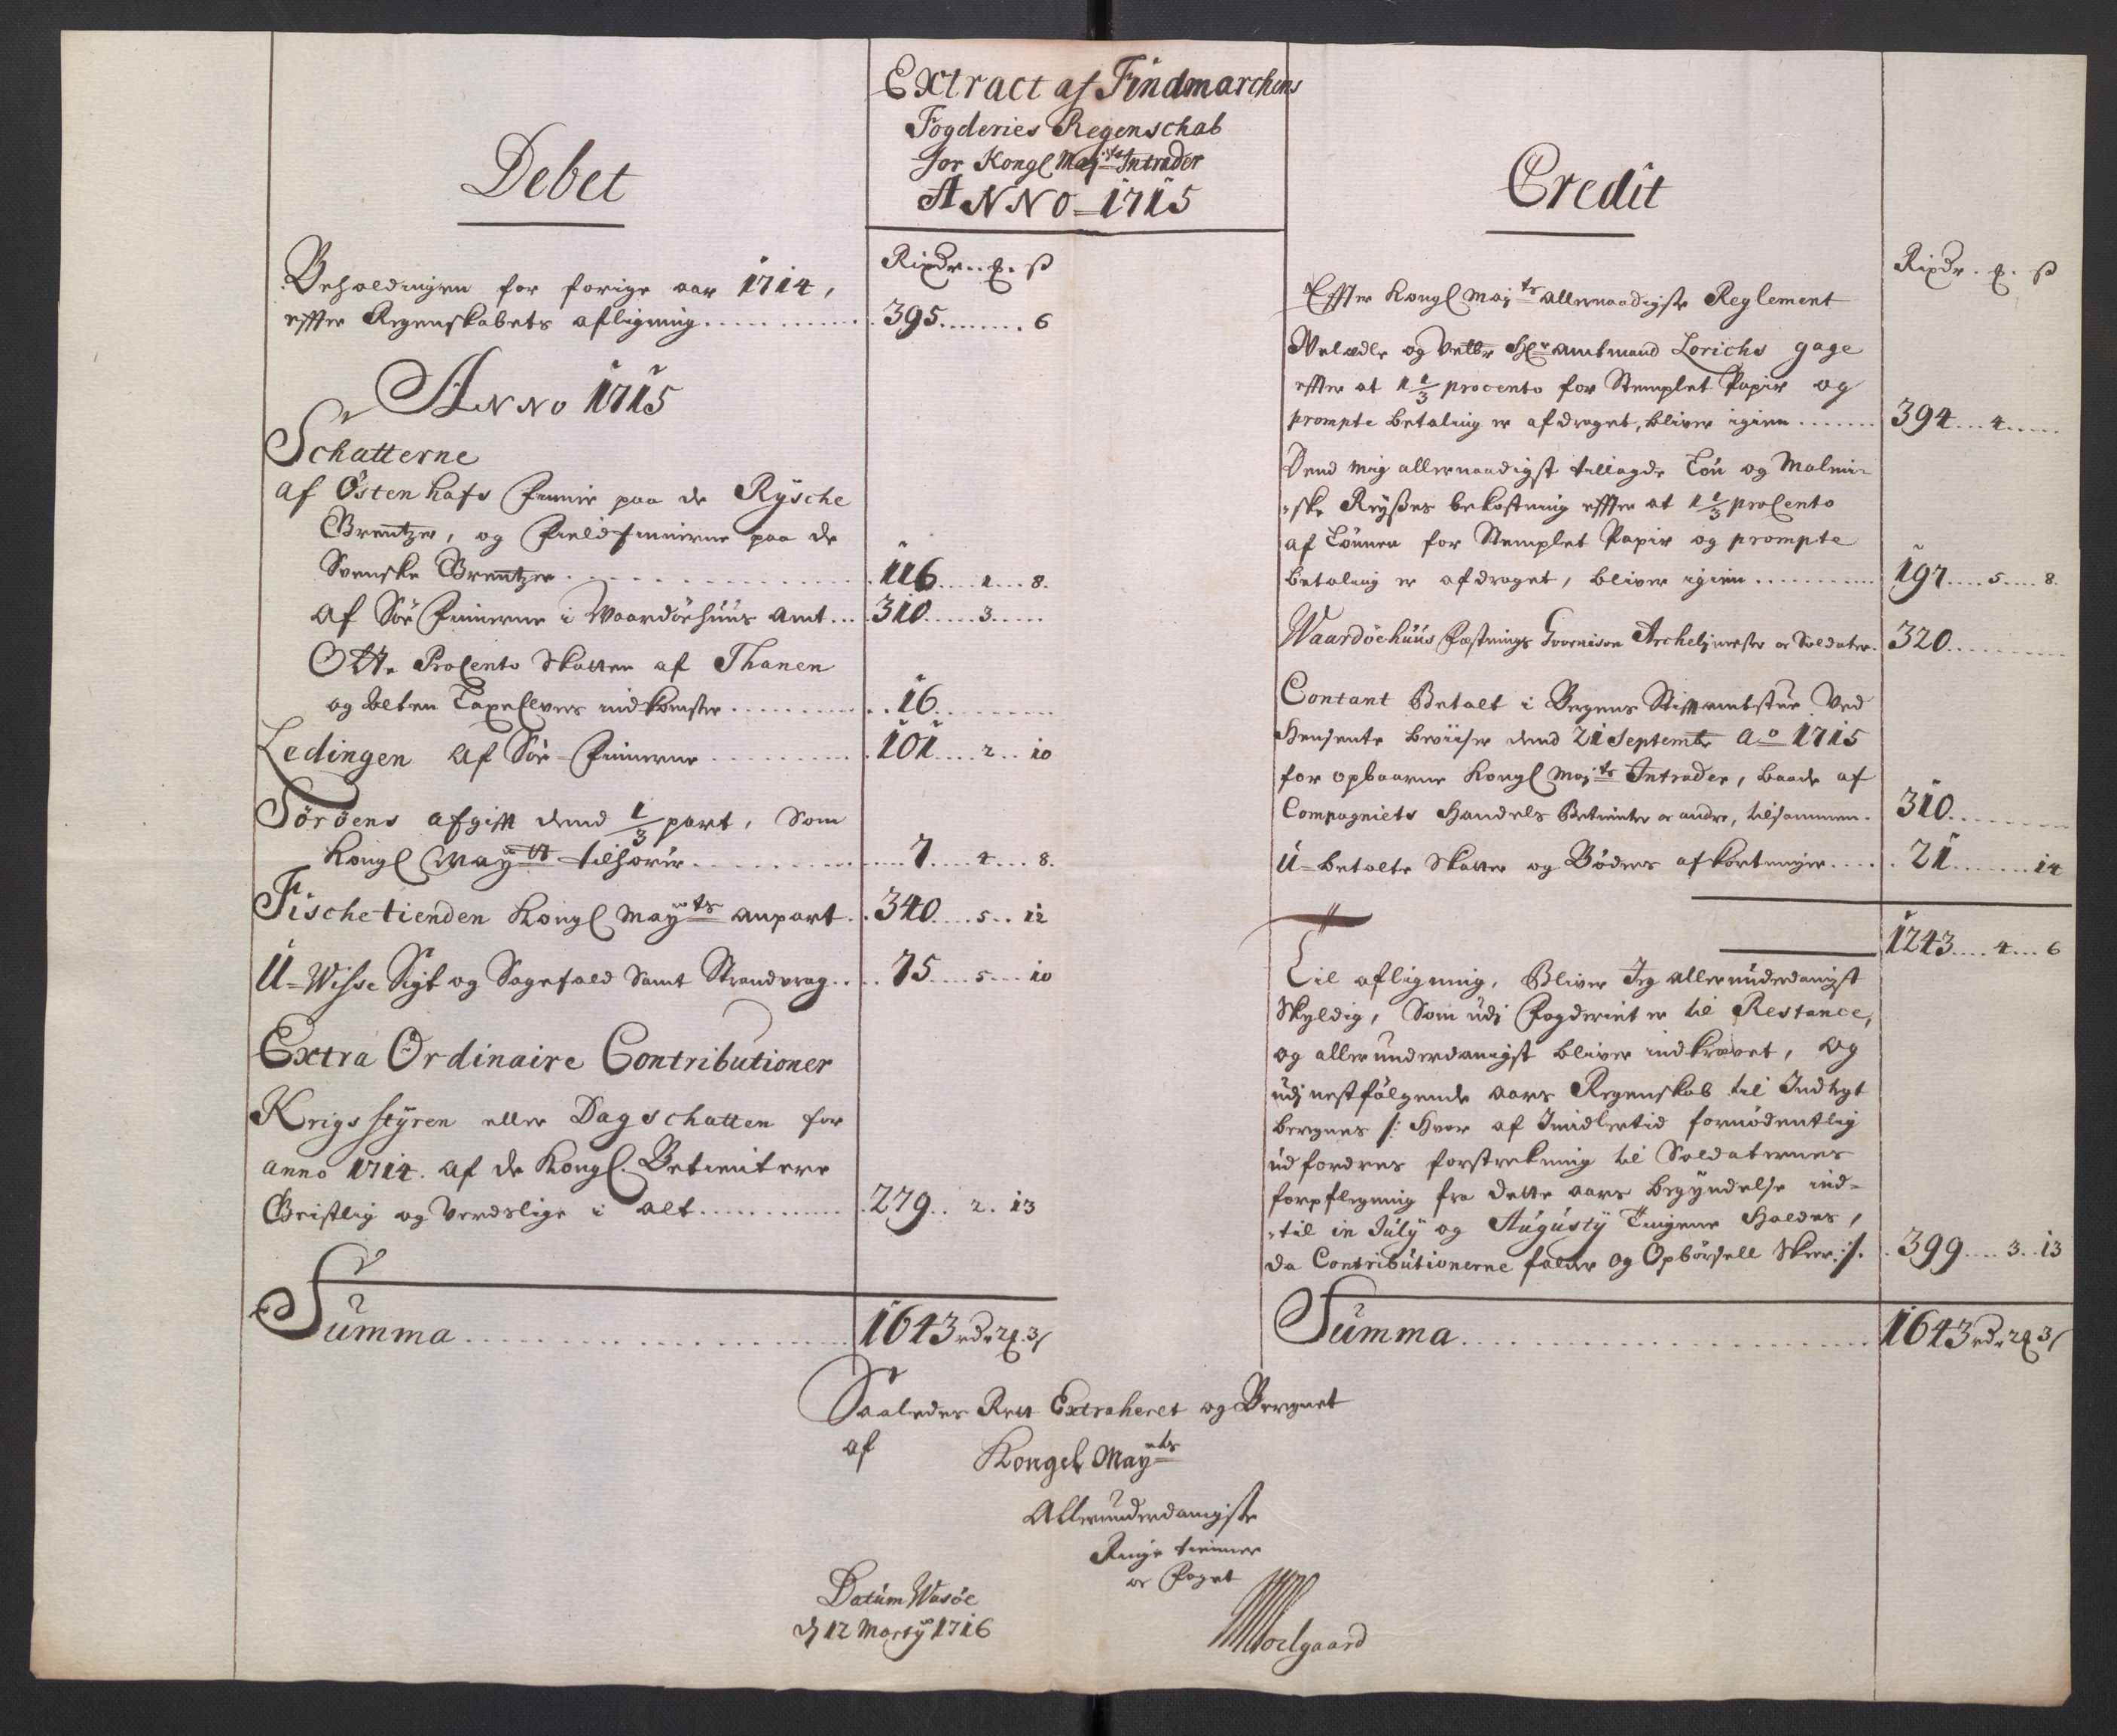 Extract af Findmarchens
Fogderies Regenschab
for Kongl Maj:ts Intrader
ANNO = 1715
Debet
Rixdr .. ℔. ß
Beholdningen for forige aar 1714,
effter Regenskabets afligning ............ 395 ........ 6
ANNO 1715
Schatterne
af Østenhafs Finner paa de Rysche
Grentzer, og Fieldfinnerne paa de
Svenske Grentzer ............ 116 .... 1 ... 8.
af Siøe Finnerne i Waardøehuus Amt ... 310 ..... 3 .....
Otte ProCento Skatten af Thanen
og Alten Laxe Elvers indkomster ......... 16 ............
Ledingen af Siøe-Finnerne ......... 101 .... 2 .. 10
Sørøens afgifft dend 1/3 part, Som
Kongl May:tt tilhører ............ 7 .... 4 ... 8.
Fischetienden Kongl May:ts anpart .. 340 .... 5 .. 12
U=Wisse Sigt og Sagefald Samt Strandvrag .. 75 .... 5 ... 10
Extra Ordinaire Contributioner
Krigs styren eller Dagschatten for
anno 1714. af de Kongl. Betientere
Geistlig og Verdslige i alt ............ 279 .. 2. 13
Summa .................. 1643 rdr 2℔. 3ß
Credit
Rixdr . ℔. ß
Effter Kongl Maj:ts allernaadigste Reglement
Velædle og Hr Amtmand Lorichs gage
effter at 1 1/3 procento for Stemplet Papir og
prompte betaling er afdraget, bliver igien ....... 394 ... 4 .....
Dend mig allernaadigst tillagde Løn og Malmi=
=ske Reyses bekostning effter at 1 1/3 proCento
af Lønnen for Stemplet Papir og prompte
betaling er afdraget, bliver igien ........... 197 .... 5 ... 8.
Waardøehuus Fæstnings Gvarnison Archelimester oc Soldater. 320 ............
Contant Betalt i Bergens Stifftamtstue Ved
Hensente beviiser dend 21 Septembr Ao 1715
for opbaarne Kongl Maj:ts Intrader, baade af
Compagniets Handels Betienter oc andre, tilsammen. 310 .........
U=betalte Skatter og Bøders afkortninger .... 21 ....... 14
1243 .... 4 ... 6
Til afligning, Bliver Jeg allerunderdanigst
Skyldig, Som udj Fogderiet er til Restance,
og allerunderdanigst bliver indkrævet, og
udj nestfølgende aars Regenskab til Indtegt
beregnes /: Hvor af Imidlertid fornødentlig
udfordres forstrekning til Soldaternes
forpflegning fra dette aars begyndelse ind=
=til in July og Augusty Tingene Holdes,
da Contributionerne falder og Opbørsell Skeer :/. 399 .... 3 .. 13
Summa .................. 1643 rdr 2℔ 3ß
Saaledes Rett Extraheret og Beregnet
af
Kongel May:ts
Allerunderdanigste
Ringe tienner
oc Foget
Datum Wasöe
d 12 Marty 1716